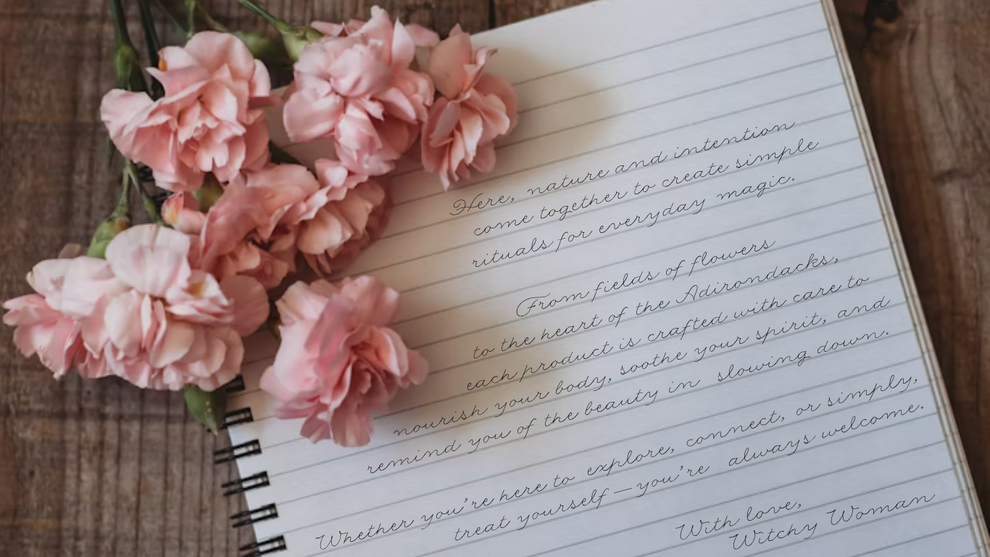 Here, nature and intention
come together to create simple
rituals for everyday magic.
From fields of flowers
to the heart of the Adirondacks,
each product is crafted with care to
nourish your body, soothe your spirit, and
remind you of the beauty in slowing down.
Whether you're here to explore, connect, or simply,
treat yourself—you're always welcome.
With love,
Witchy Woman